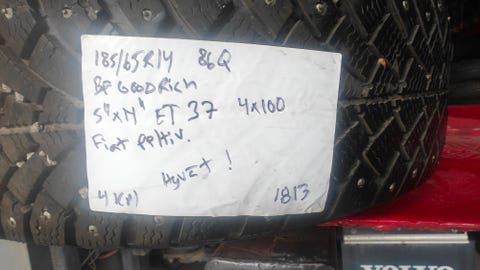 185/65R14 86Q
BF GOODRICH
5"x14" ET 37 4x100
Fiat peltiv.
Hyvät!
4 K(pl) 1813
VOLVO